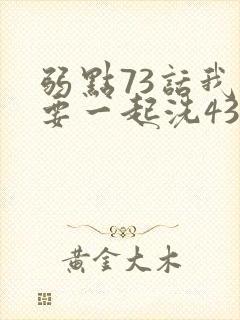 弱點73話我
要一起洗43
黃金大木